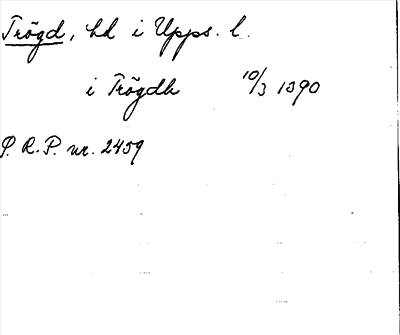 Trögd, hd i Upps. l.
i Trögdh 10/3 1390
P. R. P. nr. 2459